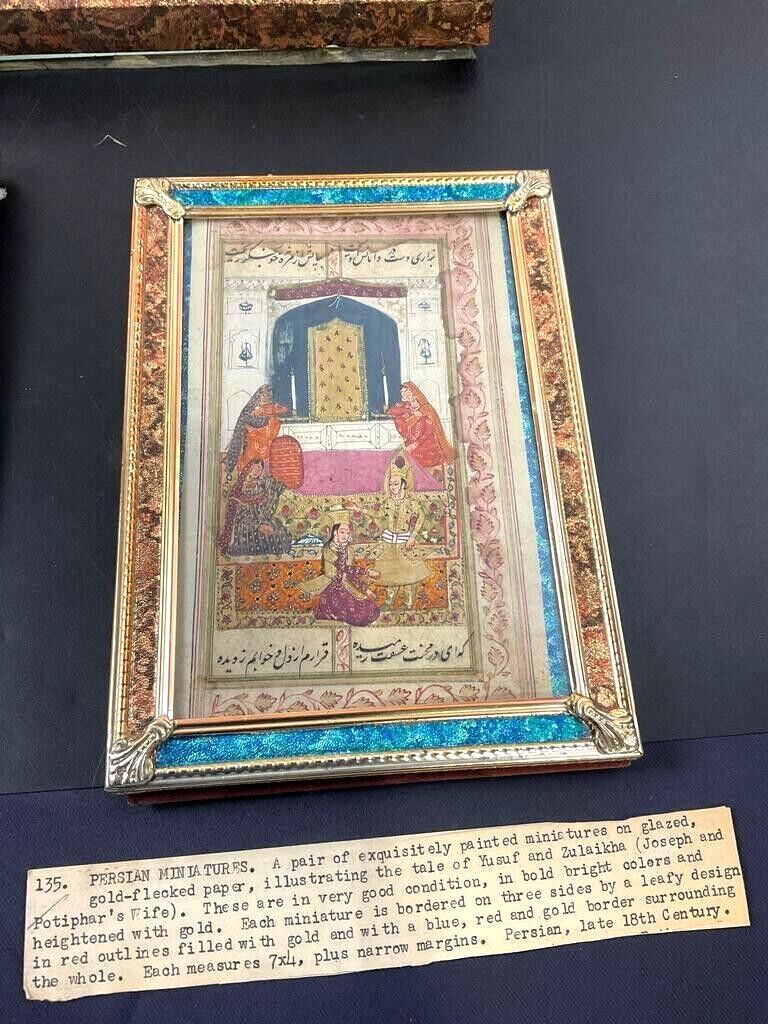 بزاری دست در دامانش آویخت بپایش از مژه خون جگر ریخت
که ای در محنت عشقت رمیده قرارم از دل و خوابم ز دیده
135. PERSIAN MINIATURES. A pair of exquisitely painted miniatures on glazed,
gold-flecked paper, illustrating the tale of Yusuf and Zulaikha (Joseph and
Potiphar's Wife). These are in very good condition, in bold bright colors and
heightened with gold. Each miniature is bordered on three sides by a leafy design
in red outlines filled with gold and with a blue, red and gold border surrounding
the whole. Each measures 7x4, plus narrow margins. Persian, late 18th Century.